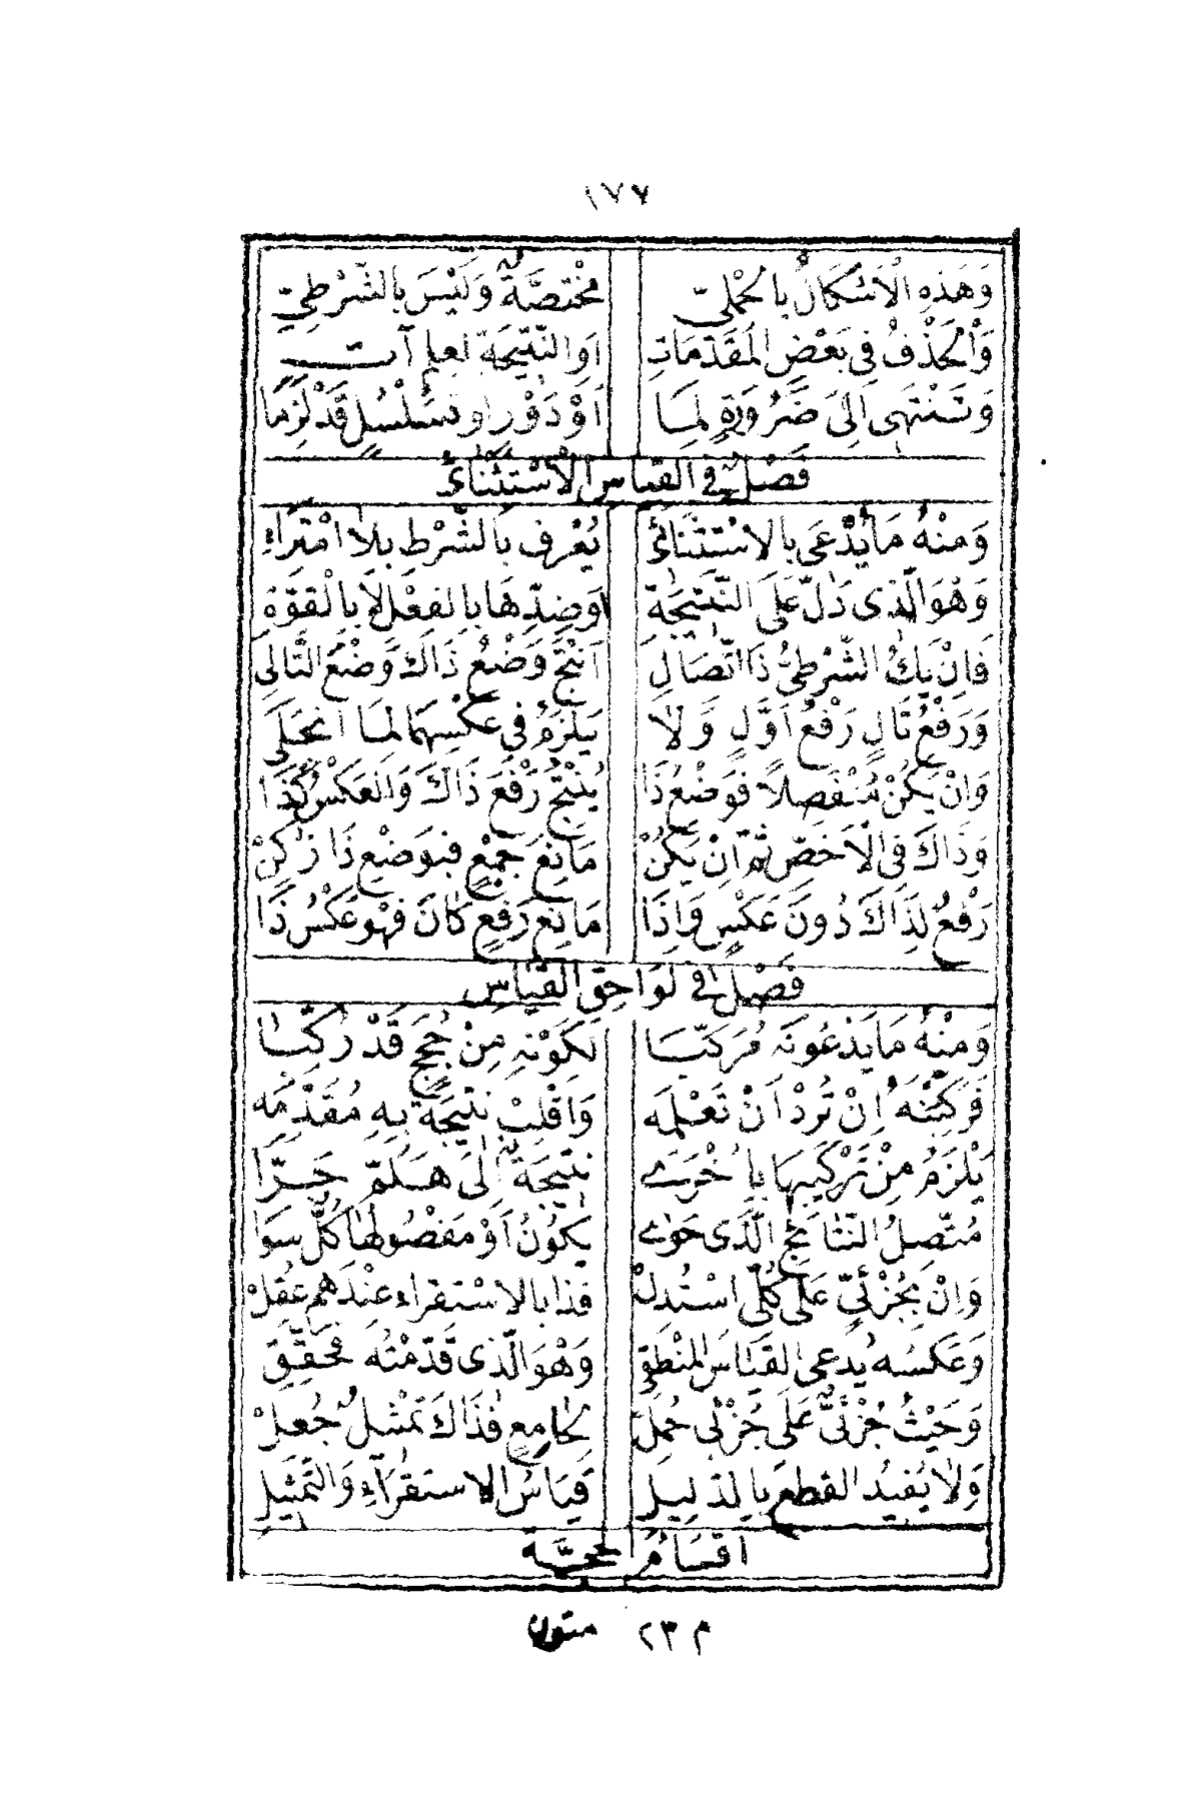 ١٧٧
وَهَذِهِ الْاَشْكَالُ بِالْحَمْلِيّ مُخْتَصَّةٌ وَلَيْسَ بِالشَّرْطِيّ
وَالْحَذْفُ فِي بَعْضِ الْمُقَدِّمَاتِ اَوِ النَّتِيجَةِ لِعِلْمٍ آت
وَتَنْتَهِي اِلَى ضَرُورَةٍ لِمَا اَوْ دَوْرٍ اَوْ تَسَلْسُلٍ قَدْ لَزِمَا
فَصْلٌ فِي الْقِيَاسِ الْاِسْتِثْنَائِيّ
وَمِنْهُ مَا يُدْعَى بِالاِسْتِثْنَائِي يُعْرَفُ بِالشَّرْطِ بِلَا امْتِرَاءِ
وَهْوَ الَّذِي دَلَّ عَلَى النَّتِيجَةِ اَوْ ضِدِّهَا بِالْفِعْلِ لَا بِالْقُوَّةِ
فَاِنْ يَكُ الشَّرْطِيُّ ذَا اتِّصَالِ اَنْتَجَ وَضْعُ ذَاكَ وَضْعَ التَّالِي
وَرَفْعُ تَالٍ رَفْعَ اَوَّلٍ وَلَا يَلْزَمُ فِي عَكْسِهِمَا لِمَا انْجَلَى
وَاِنْ يَكُنْ مُنْفَصِلًا فَوَضْعُ ذَا يُنْتِجُ رَفْعَ ذَاكَ وَالْعَكْسُ كَذَا
وَذَاكَ فِي الْاَخَصِّ ثُمَّ اِنْ يَكُنْ مَانِعَ جَمْعٍ فَبِوَضْعِ ذَا زُكِنْ
رَفْعٌ لِذَاكَ دُونَ عَكْسٍ وَاِذَا مَانِعَ رَفْعٍ كَانَ فَهْوَ عَكْسُ ذَا
فَصْلٌ فِي لَوَاحِقِ الْقِيَاسِ
وَمِنْهُ مَا يَدْعُونَهُ مُرَكَّبَا لِكَوْنِهِ مِنْ حُجَجٍ قَدْ رُكِّبَا
فَرَكِّبَنْهُ اِنْ تُرِدْ اَنْ تَعْلَمَه وَاقْلِبْ نَتِيجَةً بِهِ مُقَدِّمَه
يَلْزَمُ مِنْ تَرْكِيبِهَا بِاُخْرَى نَتِيجَةٌ اِلَى هَلُمَّ جَرَّا
مُتَّصِلُ النَّتَائِجِ الَّذِي حَوَى يَكُونُ اَوْ مَفْصُولَهَا كُلٌّ سَوَا
وَاِنْ بِجُزْئِيٍّ عَلَى كُلِّي اسْتُدِلْ فَذَا بِالاسْتِقْرَاءِ عِنْدَهُمْ عُقِلْ
وَعَكْسُهُ يُدْعَى الْقِيَاسَ الْمَنْطِقِي وَهْوَ الَّذِي قَدَّمْتُهُ فَحَقِّقِ
وَحَيْثُ جُزْئِيٌّ عَلَى جُزْئِي حُمِلْ لِجَامِعٍ فَذَاكَ تَمْثِيلٌ جُعِلْ
وَلَا يُفِيدُ الْقَطْعَ بِالدَّلِيلِ قِيَاسُ الاسْتِقْرَاءِ وَالتَّمْثِيلِ
اَقْسَامُ الْحُجَّةِ
م ٢٣ متون